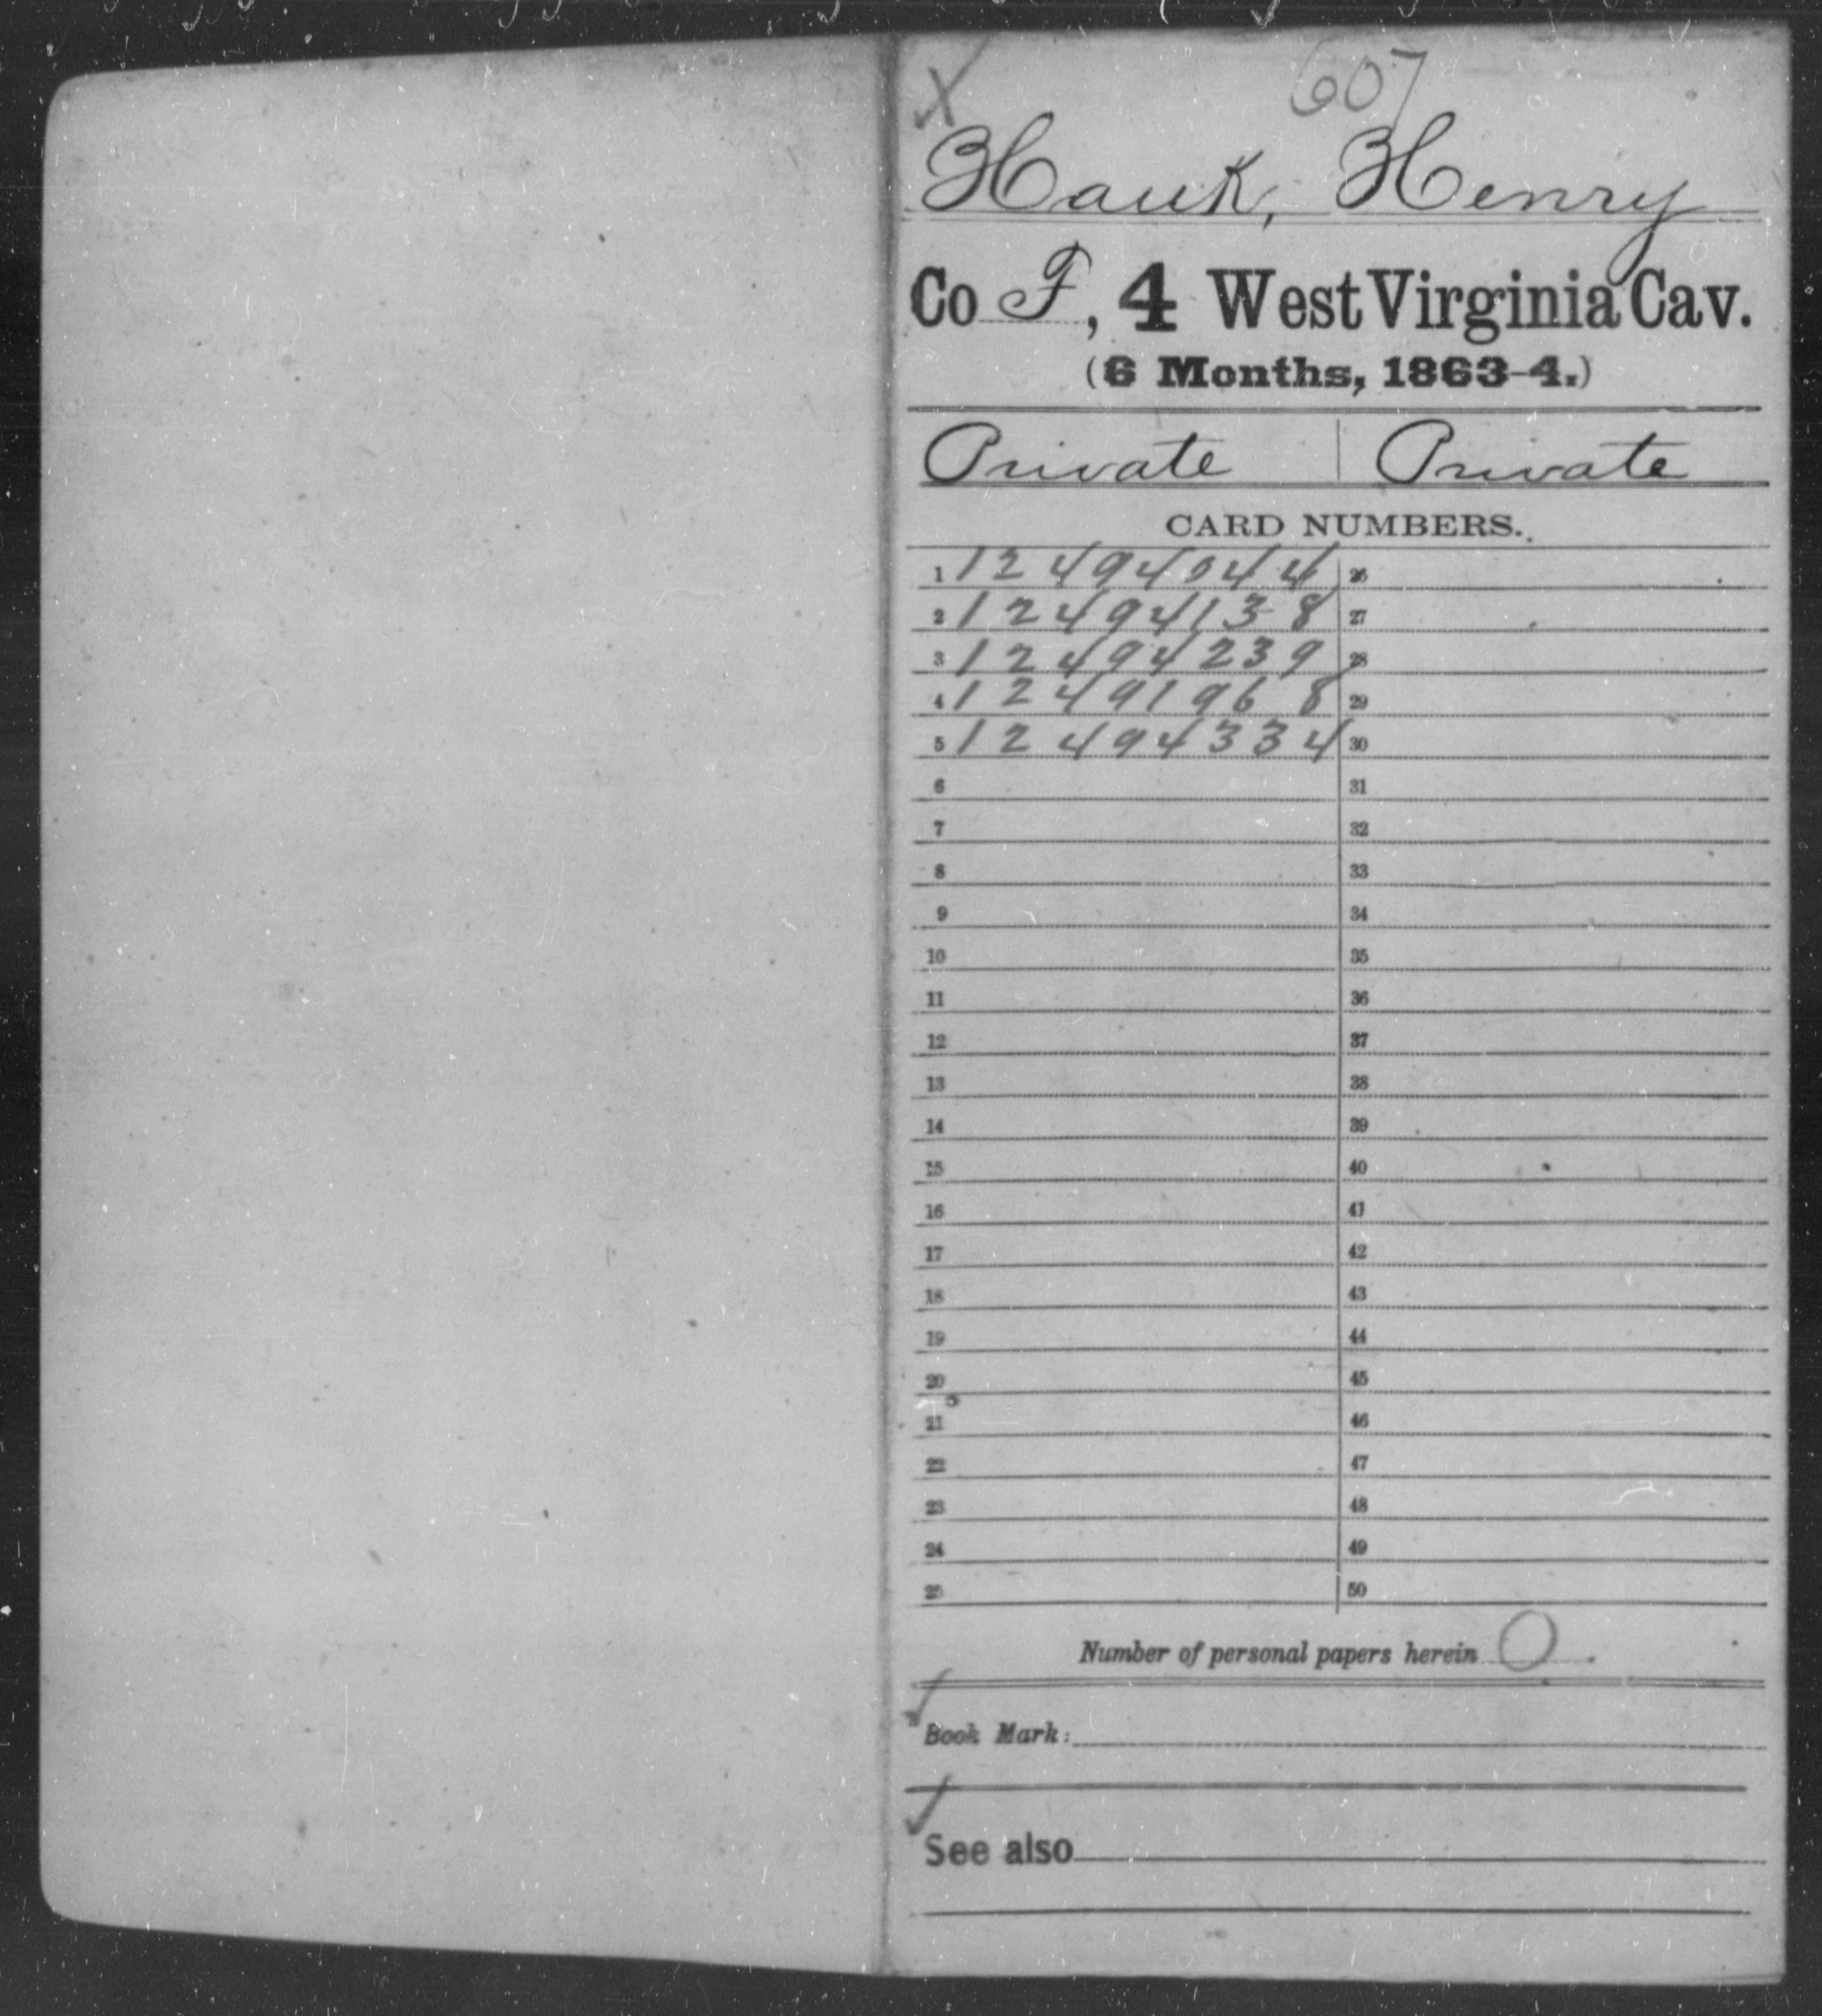 X 607
Hauk, Henry
Co F, 4 West Virginia Cav.
(6 Months, 1863-4.)
Private | Private
CARD NUMBERS.
1 12494044 26
2 12494138 27
3 12494239 28
4 12491968 29
5 12494334 30
6 31
7 32
8 33
9 34
10 35
11 36
12 37
13 38
14 39
15 40
16 41
17 42
18 43
19 44
20 45
21 46
22 47
23 48
24 49
25 50
Number of personal papers herein 0.
Book Mark:
See also